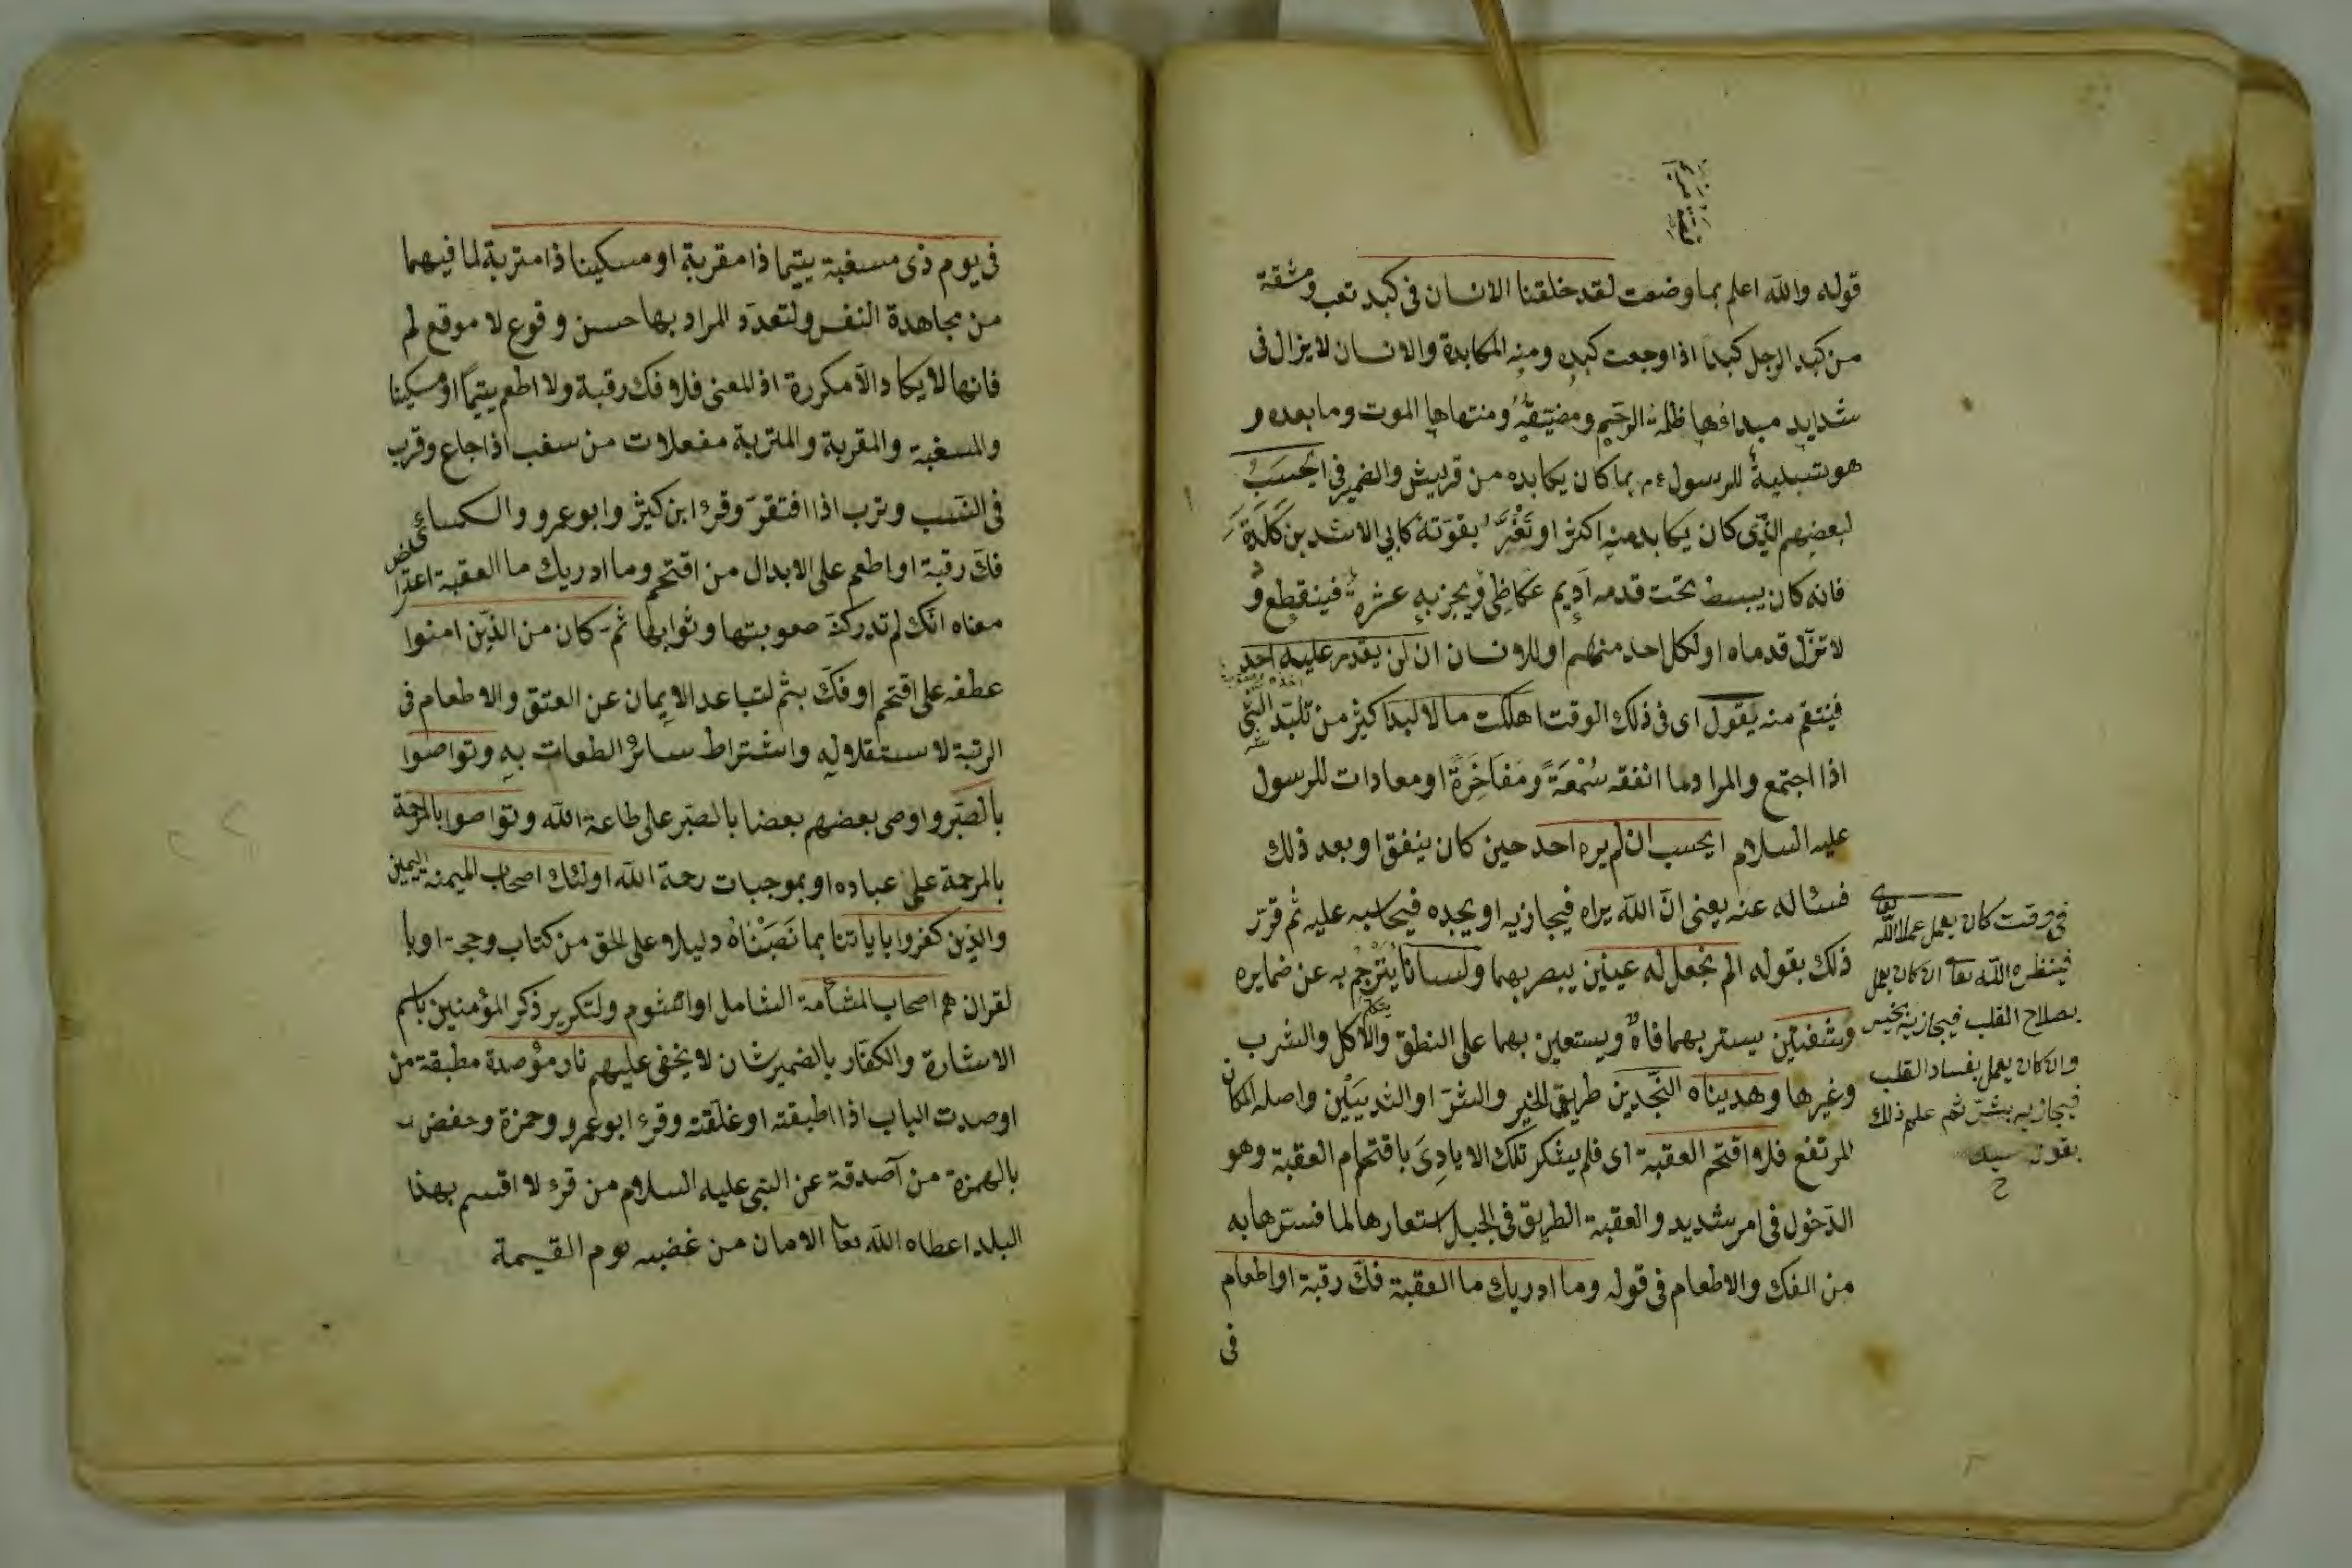 قوله والله اعلم بما وضعت لقد خلقنا الانسان فى كبد تعب ومشقة
من كبد الرجل كبدا اذا وجعت كبده ومنه المكابدة والانسان لا يزال فى
شدايد مبداؤها ظلمة الرحم ومضيقه ومنتهاها الموت وما بعده و
هو تسلية للرسول ءم بما كان يكابده من قريش والضمير فى ايحسب
لبعضهم الذى كان يكابد منه اكثر او تغر بقوته كابي الاشد بن كلدة
فانه كان يبسط تحت قدمه اديم عكاظى ويجزبه عشرة فينقطع و
لا تزل قدماه او لكل احد منهم او للانسان ان لن يقدر عليه احد
فينتقم منه يقول اى فى ذلك الوقت اهلكت مالا لبدا كثير من تلبد الشئ
اذا اجتمع والمراد ما انفقه سمعة ومفاخرة او معادات للرسول
عليه السلام ايحسب ان لم يره احد حين كان ينفق او بعد ذلك
فسئاله عنه يعنى ان الله يراه فيجازيه او يجده فيحاسبه عليه ثم قرر
ذلك بقوله الم نجعل له عينين يبصر بهما ولسانا يترجم به عن ضمايره
وشفتين يستر بهما فاه ويستعين بهما على النطق والاكل والشرب
وغيرها وهديناه النجدين طريق الخير والشر او الثديين واصله المكان
المرتفع فلا اقتحم العقبة اى فلم يشكر تلك الايادى باقتحام العقبة وهو
الدخول فى امر شديد والعقبة الطريق فى الجبل استعارها لما فسرها به
من الفك والاطعام فى قوله وما ادريك ما العقبة فك رقبة او اطعام
فى
فى وقت كان يعمل عملا لله تعالى
فينظره الله تعا ان كان يعمل
بصلاح القلب فيجازيه بخير
وان كان يعمل بفساد القلب
فيجازيه بشر ثم علم ذلك
بقوله
فى يوم ذى مسغبة يتيما ذا مقربة او مسكينا ذا متربة لما فيهما
من مجاهدة النفس ولتعدد المراد بها حسن وقوع لا موقع لم
فانها لا يكاد الا مكررة اذ المعنى فلا فك رقبة ولا اطعم يتيما او مسكينا
والمسغبة والمقربة والمتربة مفعلات من سغب اذا جاع وقرب
فى النسب وترب اذا افتقر وقرء ابن كثير وابو عمرو والكسائى
فك رقبة او اطعم على الابدال من اقتحم وما ادريك ما العقبة اعتراض
معناه انك لم تدرك صعوبتها وثوابها ثم كان من الذين امنوا
عطفه على اقتحم او فك بثم لتباعد الايمان عن العتق والاطعام فى
الرتبة لاستقلاله واشتراط سائر الطعات به وتواصوا
بالصبر واوصى بعضهم بعضا بالصبر على طاعة الله وتواصوا بالمرحمة
بالمرحمة على عباده او بموجبات رحمة الله اولئك اصحاب الميمنة اليمين
والذين كفروا باياتنا بما نصبناه دليلا على الحق من كتاب وحجة او با
لقران هم اصحاب المشامة الشامل او الشوم ولتكرير ذكر المؤمنين باسم
الاشارة والكفار بالضمير شان لا يخفى عليهم نار مؤصدة مطبقة من
اوصدت الباب اذا اطبقته او غلقته وقرء ابو عمرو وحمزة وحفص
بالهمزة من آصدقة عن النبى عليه السلام من قرء لا اقسم بهذا
البلد اعطاه الله تعا الامان من غضبه يوم القيمة